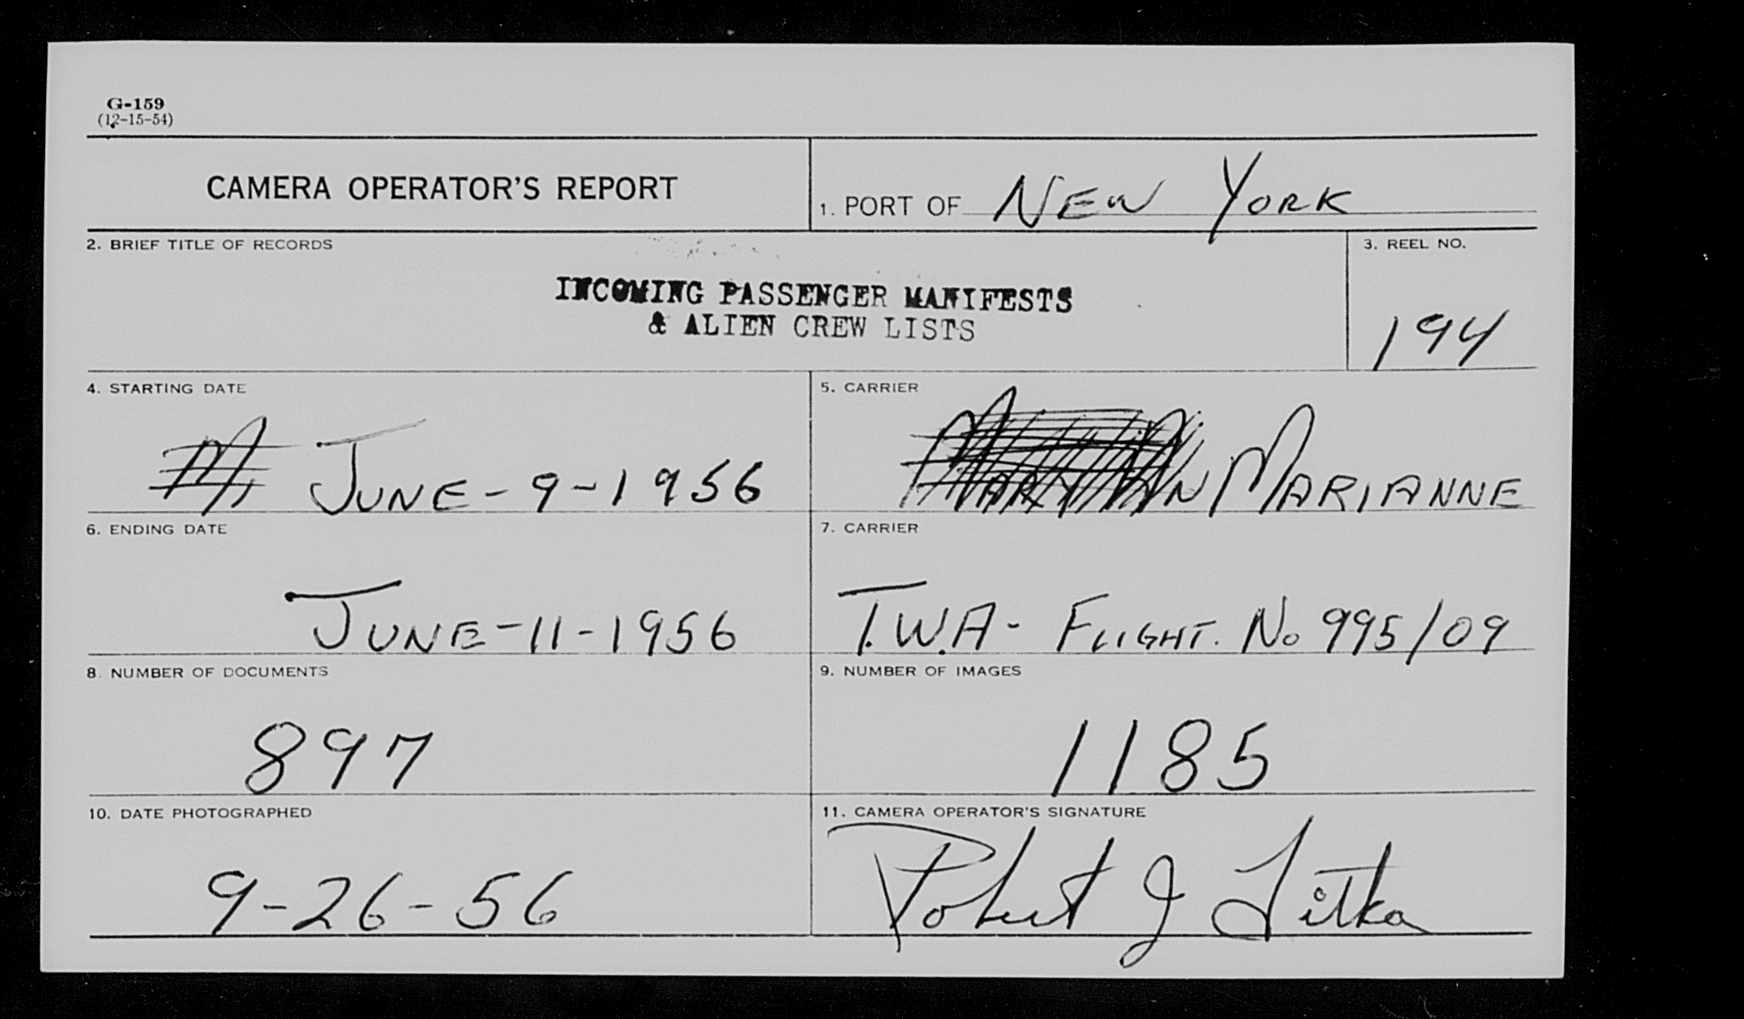 G-159
(12-15-54)
CAMERA OPERATOR'S REPORT
1. PORT OF NEW YORK
2. BRIEF TITLE OF RECORDS
INCOMING PASSENGER MANIFESTS
& ALIEN CREW LISTS
3. REEL NO.
194
4. STARTING DATE
JUNE-9-1956
5. CARRIER
MARIANNE
6. ENDING DATE
JUNE-11-1956
7. CARRIER
T.W.A- FLIGHT. No 995/09
8. NUMBER OF DOCUMENTS
897
9. NUMBER OF IMAGES
1185
10. DATE PHOTOGRAPHED
9-26-56
11. CAMERA OPERATOR'S SIGNATURE
Robert J